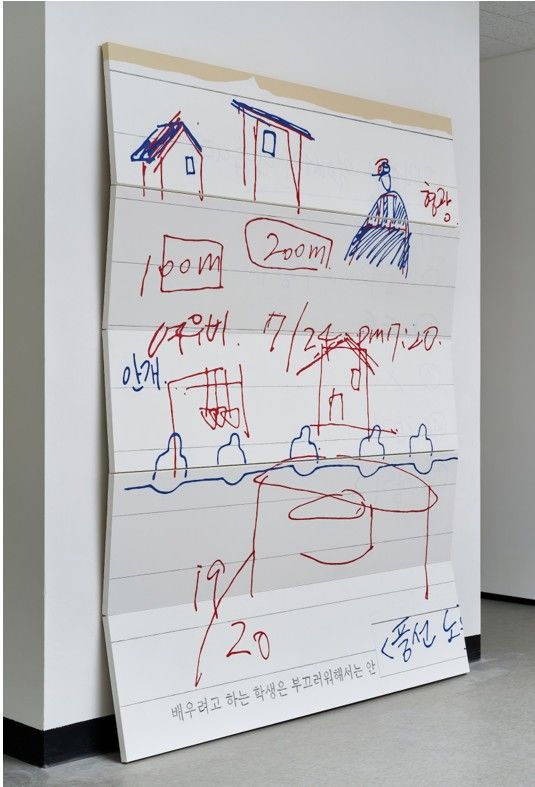 형광.
100m
200m
여우비. 7/24 pm7:20.
안개.
19/20
<풍선 노
배우려고 하는 학생은 부끄러워해서는 안